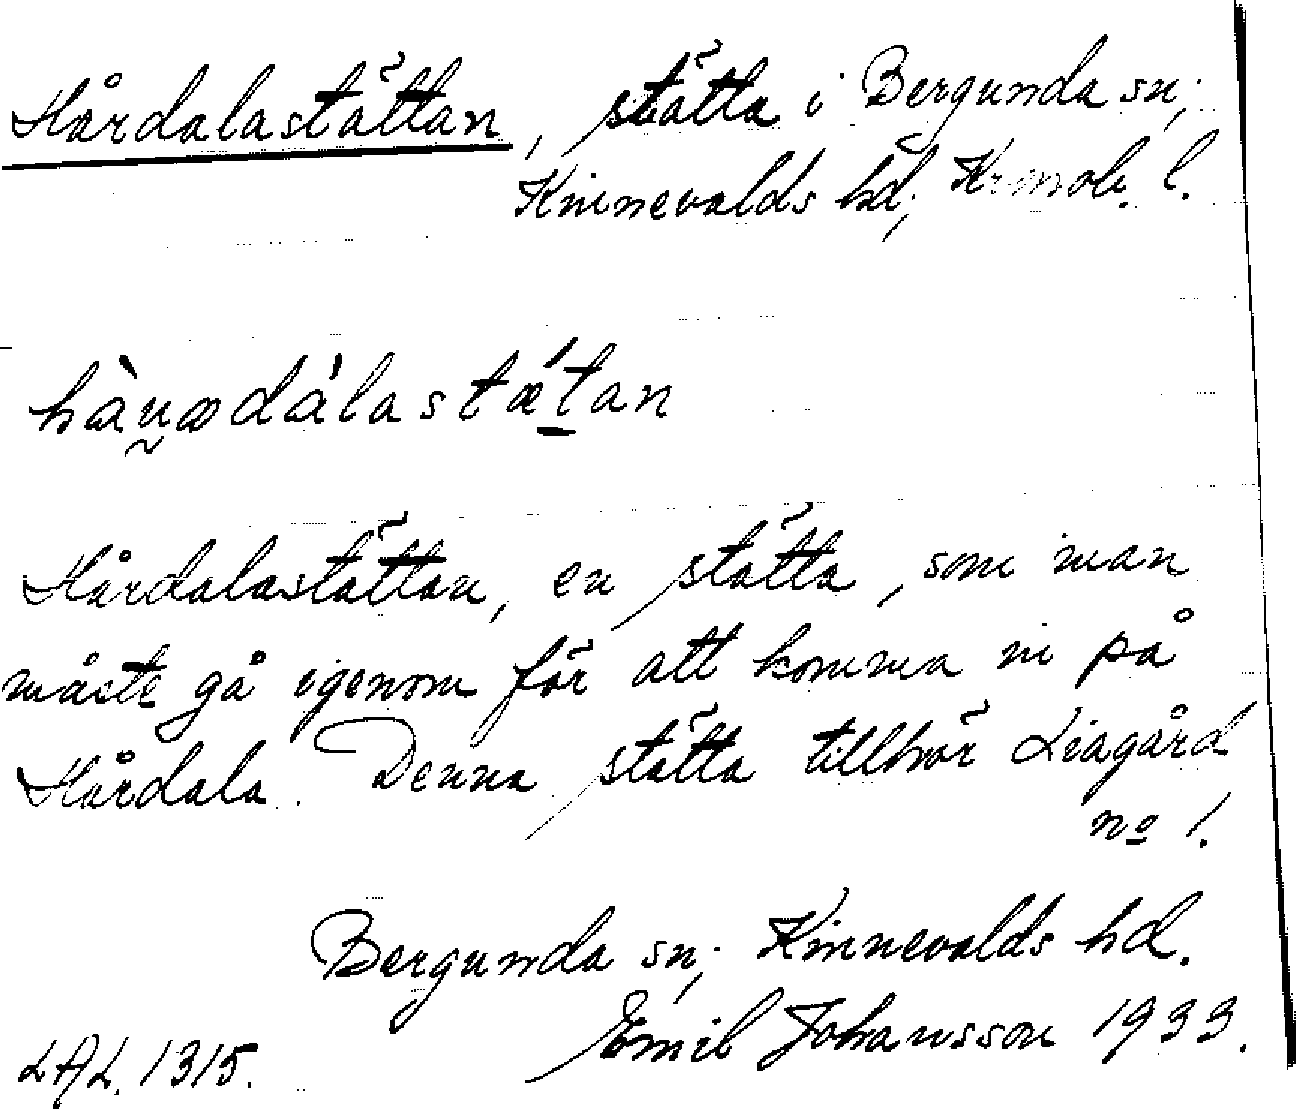 Hårdalastättan, stätta i Bergunda sn;
Kinnevalds hd; Kronob. l.
hàu̯ædàlastǽtan
Hårdalastättan, en stätta, som man
måste gå igenom för att komma in på
Hårdala. Denna stätta tillhör Liagård
no 1.
Bergunda sn; Kinnevalds hd.
Emil Johansson 1933.
LAL. 1315.